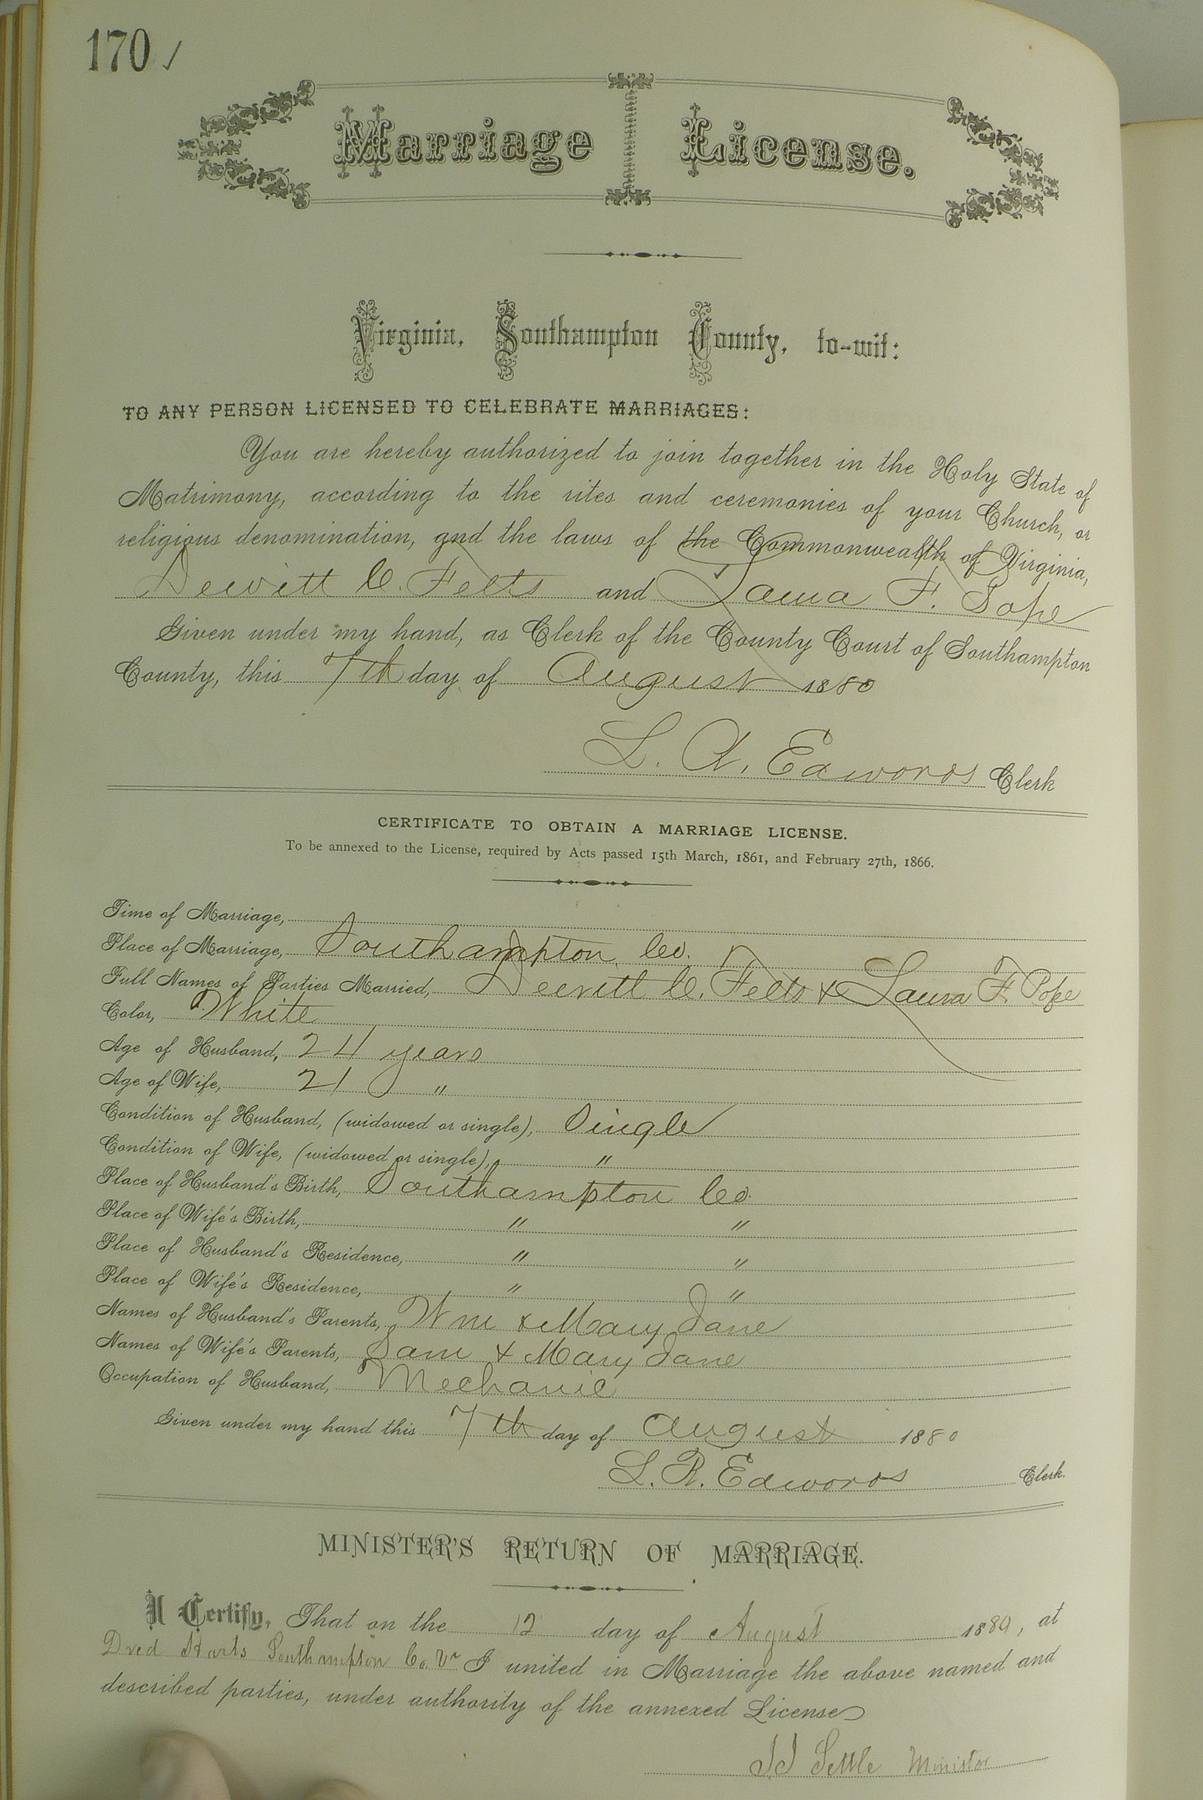 170
Marriage License.
Virginia, Southampton County, to-wit:
TO ANY PERSON LICENSED TO CELEBRATE MARRIAGES:
You are hereby authorized to join together in the Holy State of
Matrimony, according to the rites and ceremonies of your Church, or
religious denomination, and the laws of the Commonwealth of Virginia,
Dewitt C. Felts and Laura F. Pope
Given under my hand, as Clerk of the County Court of Southampton
County, this 7th day of August 1880
L. R. Edwards Clerk
CERTIFICATE TO OBTAIN A MARRIAGE LICENSE.
To be annexed to the License, required by Acts passed 15th March, 1861, and February 27th, 1866.
Time of Marriage,
Place of Marriage, Southampton Co.
Full Names of Parties Married, Dewitt C. Felts & Laura F. Pope
Color, White
Age of Husband, 24 years
Age of Wife, 21 "
Condition of Husband, (widowed or single), Single
Condition of Wife, (widowed or single), "
Place of Husband's Birth, Southampton Co
Place of Wife's Birth, " "
Place of Husband's Residence, " "
Place of Wife's Residence, " "
Names of Husband's Parents, Wm & Mary Jane
Names of Wife's Parents, Sam & Mary Jane
Occupation of Husband, Mechanic
Given under my hand this 7th day of August 1880
L. R. Edwards Clerk.
MINISTER'S RETURN OF MARRIAGE.
I Certify, That on the 12 day of August 1880, at
Dred Harts Southampton Co. Va I united in Marriage the above named and
described parties, under authority of the annexed License
Settle Minister